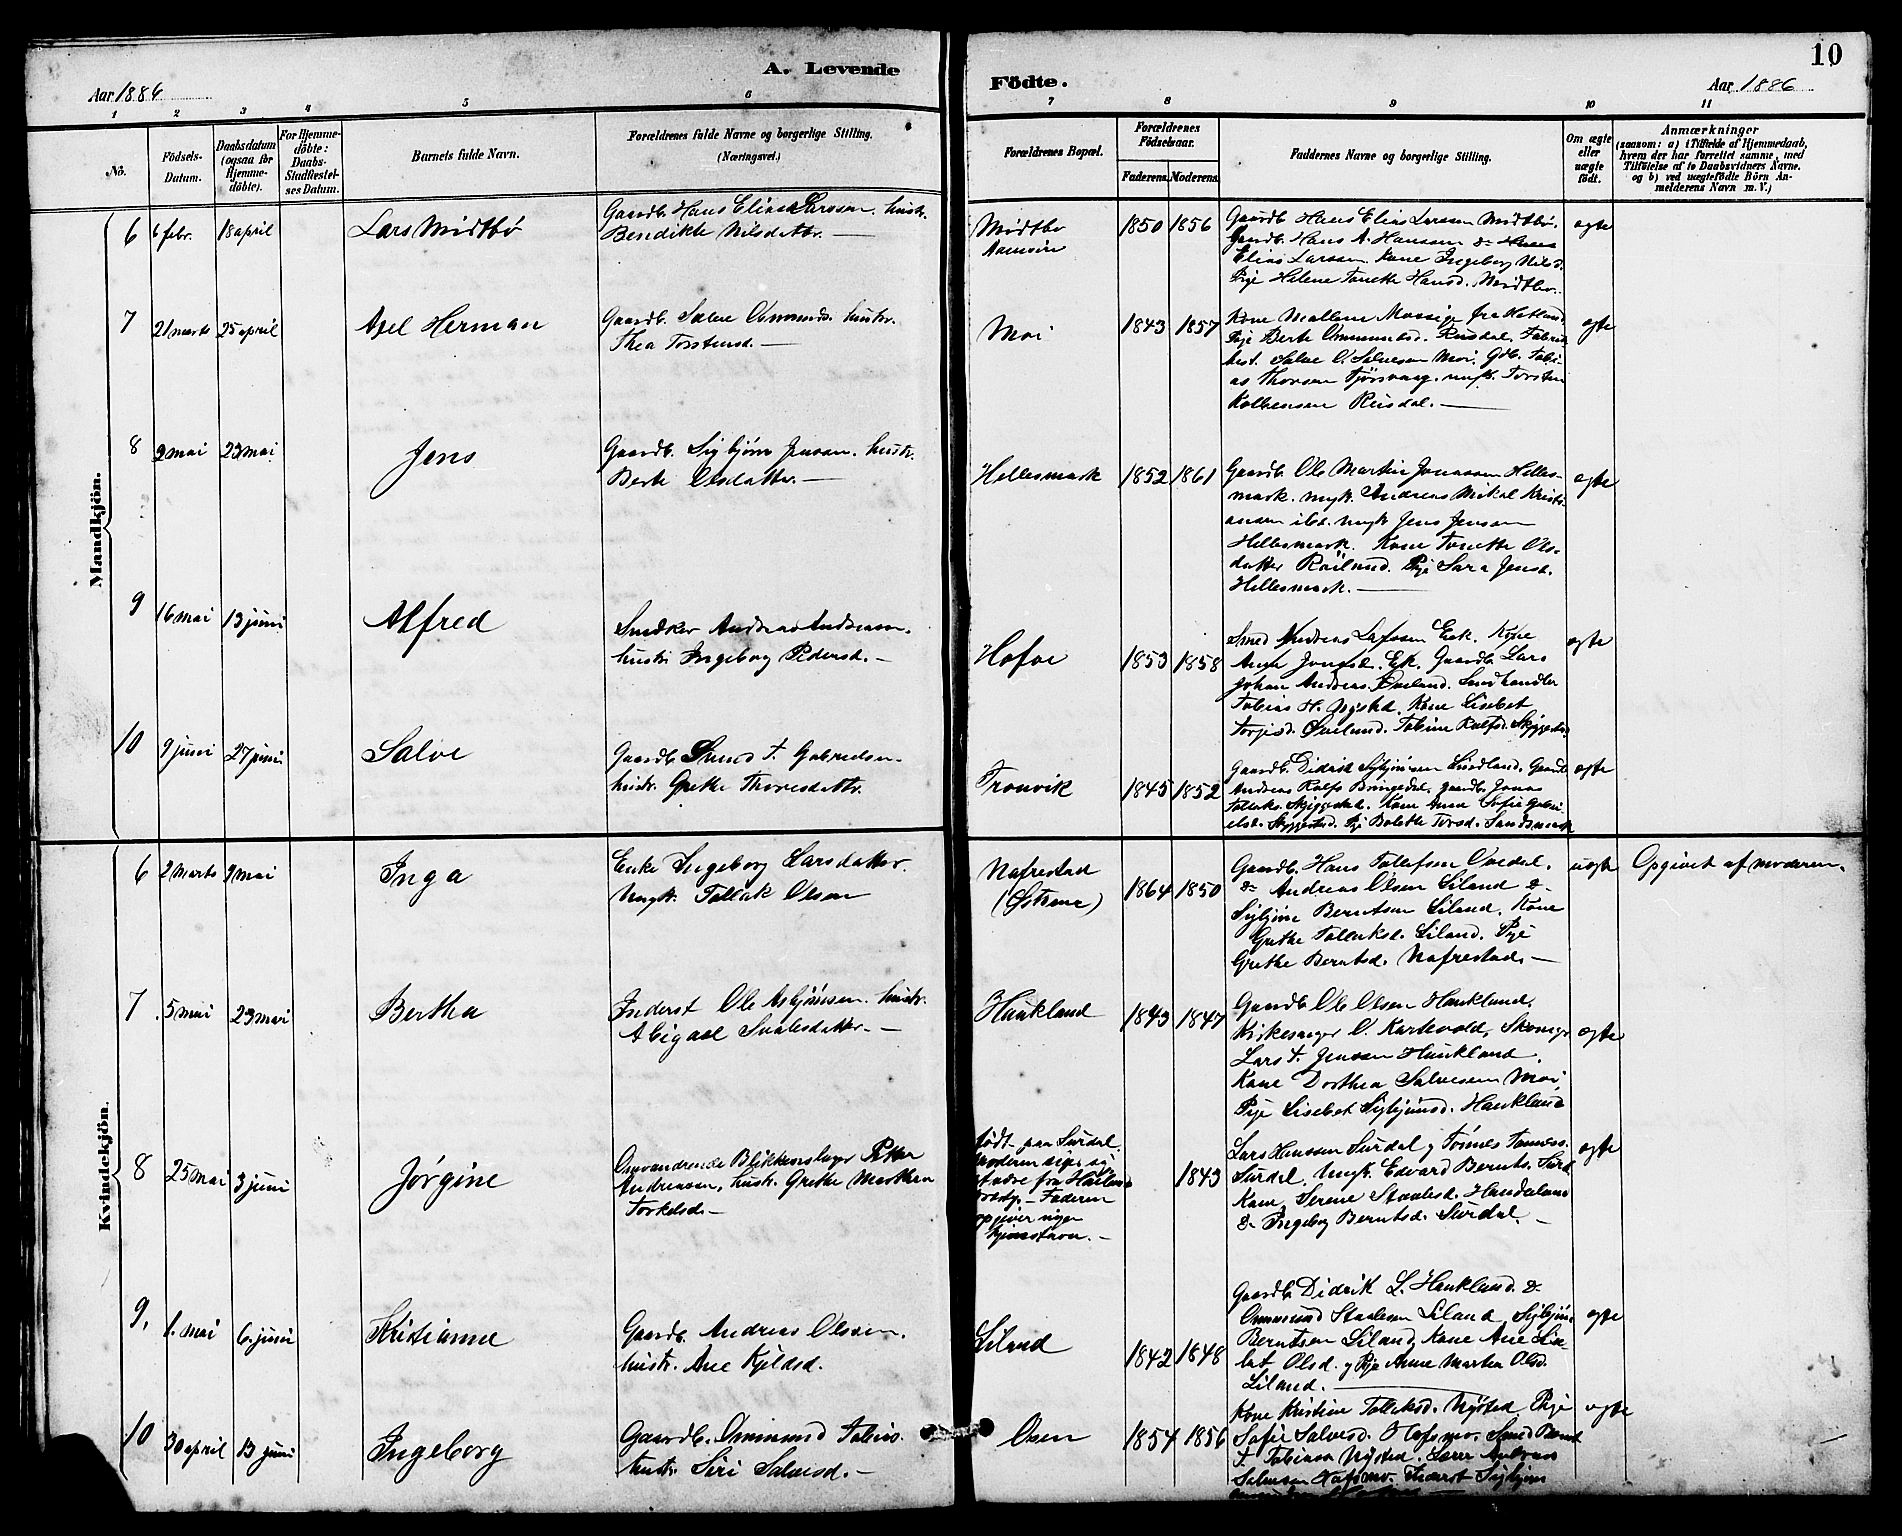 10
A. Levende
Födte.
Aar 1886
Aar 1886
1 2 3 4 5 6 7 8 9 10 11
No.
Födsels-
Datum.
Daabsdatum
(ogsaa for
Hjemme-
döbte).
For Hjemme-
döbte:
Daabs-
Stadfæstel-
ses Datum.
Barnets fulde Navn.
Forældrenes fulde Navne og borgerlige Stilling.
(Næringsvei.)
Forældrenes Bopæl.
Forældrenes
Födselsaar.
Faderens. Moderens.
Faddernes Navne og borgerlige Stilling.
Om ægte
eller
uægte
födt.
Anmærkninger
(saasom: a) i Tilfælde af Hjemmedaab,
hvem der har forrettet samme, med
Tilföielse af to Daabsvidners Navne.
og b) ved uægtefödte Börn An-
melderens Navn m. V.)
Mandkjön.
6 6 febr. 18 april Lars Midtbø
Gaardb. Hans Elias Larssen. hustr.
Bendikte Nilsdattr. —
Midtbø
1850 1856
Gaardb. Hans Elias Larssen Midtbø.
Gaardb. Hans A. Hanssen &
Elias Larssen. Kone Ingeborg Nilsd.
Pige Helene Tonette Hansd. Midtbø.
ægte
7 21 marts 25 april Axel Herman
Gaardb. Salve Ommunds. hustr.
Thea Torstensd. —
Moi
1843 1857
Kone Mallene Mossige fra Hetland
Pige Berte Ommundsd. Rusdal.
Salve O. Salvesen Moi. Gdb. Tobi-
as Thorsen Tjørsvaag. ungk. Torsten
Rusdal. —
ægte
8 2 mai 23 mai Jens
Gaardb. Sigbjørn Jensen. hustr.
Berte Olsdatter. —
Hellesmark
1852 1861
Gaardb. Ole Martin Jonassen Helles-
mark. ungk. Andreas Mikal Kristi-
ansen ibd. ungk Jens Jensen
Hellesmark. Kone Tonette Ols-
datter Røiland. Pige Sara Jensd.
Hellesmark. —
ægte
9 16 mai 13 juni Alfred
Snedker Andreas Andreasen.
hustr. Ingeborg Pedersd. —
Hofve
1853 1858
Smed Andreas Eek. Kone
Eek. Gaardb. Lars
Johan Andreas. Øveland.
Tobias H. Nysted. Kone Lisebet
Torjesd. Øvelund. Tobine Rolfsd. Skjeggestad
ægte
10 9 juni 27 juni Salve
Gaardb. Svend T. Gabrielsen.
hustr. Grethe Thoresdattr.
Tronvik
1845 1852
Gaardb. Didrik Sigbjørnsen Lindland. Gaardb.
Andreas Rolfs Bringedal, gaardb. Jonas
Tollaks. Skjeggestad. Kone Anne Sofie Gabri-
elsd. Skjeggestad. Pige Bolette Torsd. Sandsmark
ægte
Kvindekjön.
6 2 marts 9 mai Inga
Enke Ingeborg Larsdatter.
Ungk. Tollak Olsen
Nafrestad
1864 1850
Gaardb. Hans Tollefsen Ovedal.
& Andreas Olsen Liland &
Sigbjørn Berntsen Liland. Kone
Grethe Tollaksd. Liland. Pige
Grethe Berntsd. Nafrestad. —
uægte
Opgivet af moderen.
7 5 mai 23 mai Bertha
Inderst Ole Asbjørnsen. hustr.
Abigael Svalesdatter. —
Haukland
1843 1847
Gaardb. Ole Olsen Haukland.
Kirkesanger O. Kartevold,
Lars T. Jensen Haukland.
Kone Dorthea Salvesen Moi,
Pige Lisebet Sigbjørnsd. Haukland
ægte
8 25 mai 3 juni Jørgine
Omvandrende Blikkenslager Petter
Andreasen, hustr. Grethe Marthea
Torkelsd. —
født paa Surdal.
Moderen siges sig
at være fra
— Faderen
opgiver ingen
hjemstavn. —
1843
Lars Hanssen Surdal og Tønnes Tønness.
Surdal. Ungk. Edvard Bernts. Surd
Kone Serene Staalesd. Handeland
& Ingeborg Berntsd. Surdal. —
ægte
9. 1. mai 6. juni Kristianne
Gaardb. Andreas Olsen.
hustr. Ane Kjeldsd.
Liland
1842 1848
Gaardb. Didrik L. Haukland &
Ommund Staalesen Liland, Sigbjørn
Berntsen Liland, Kone Ane Lise-
bet Olsd. og Pige Anne Martea Olsd.
Liland. —
ægte
10 30 april 13 juni Ingeborg
Gaardb. Ommund Tobias.
hustr. Siri Salvesd. —
Osen
1854 1856
Kone Kristine Tollaksd. Nysted Pige
Sofie Salvesd. Hofsmo.
T. Tobiassen Nysted. Andreas
Salvesen Hofsmo. Inderst Sigbjørn
ægte